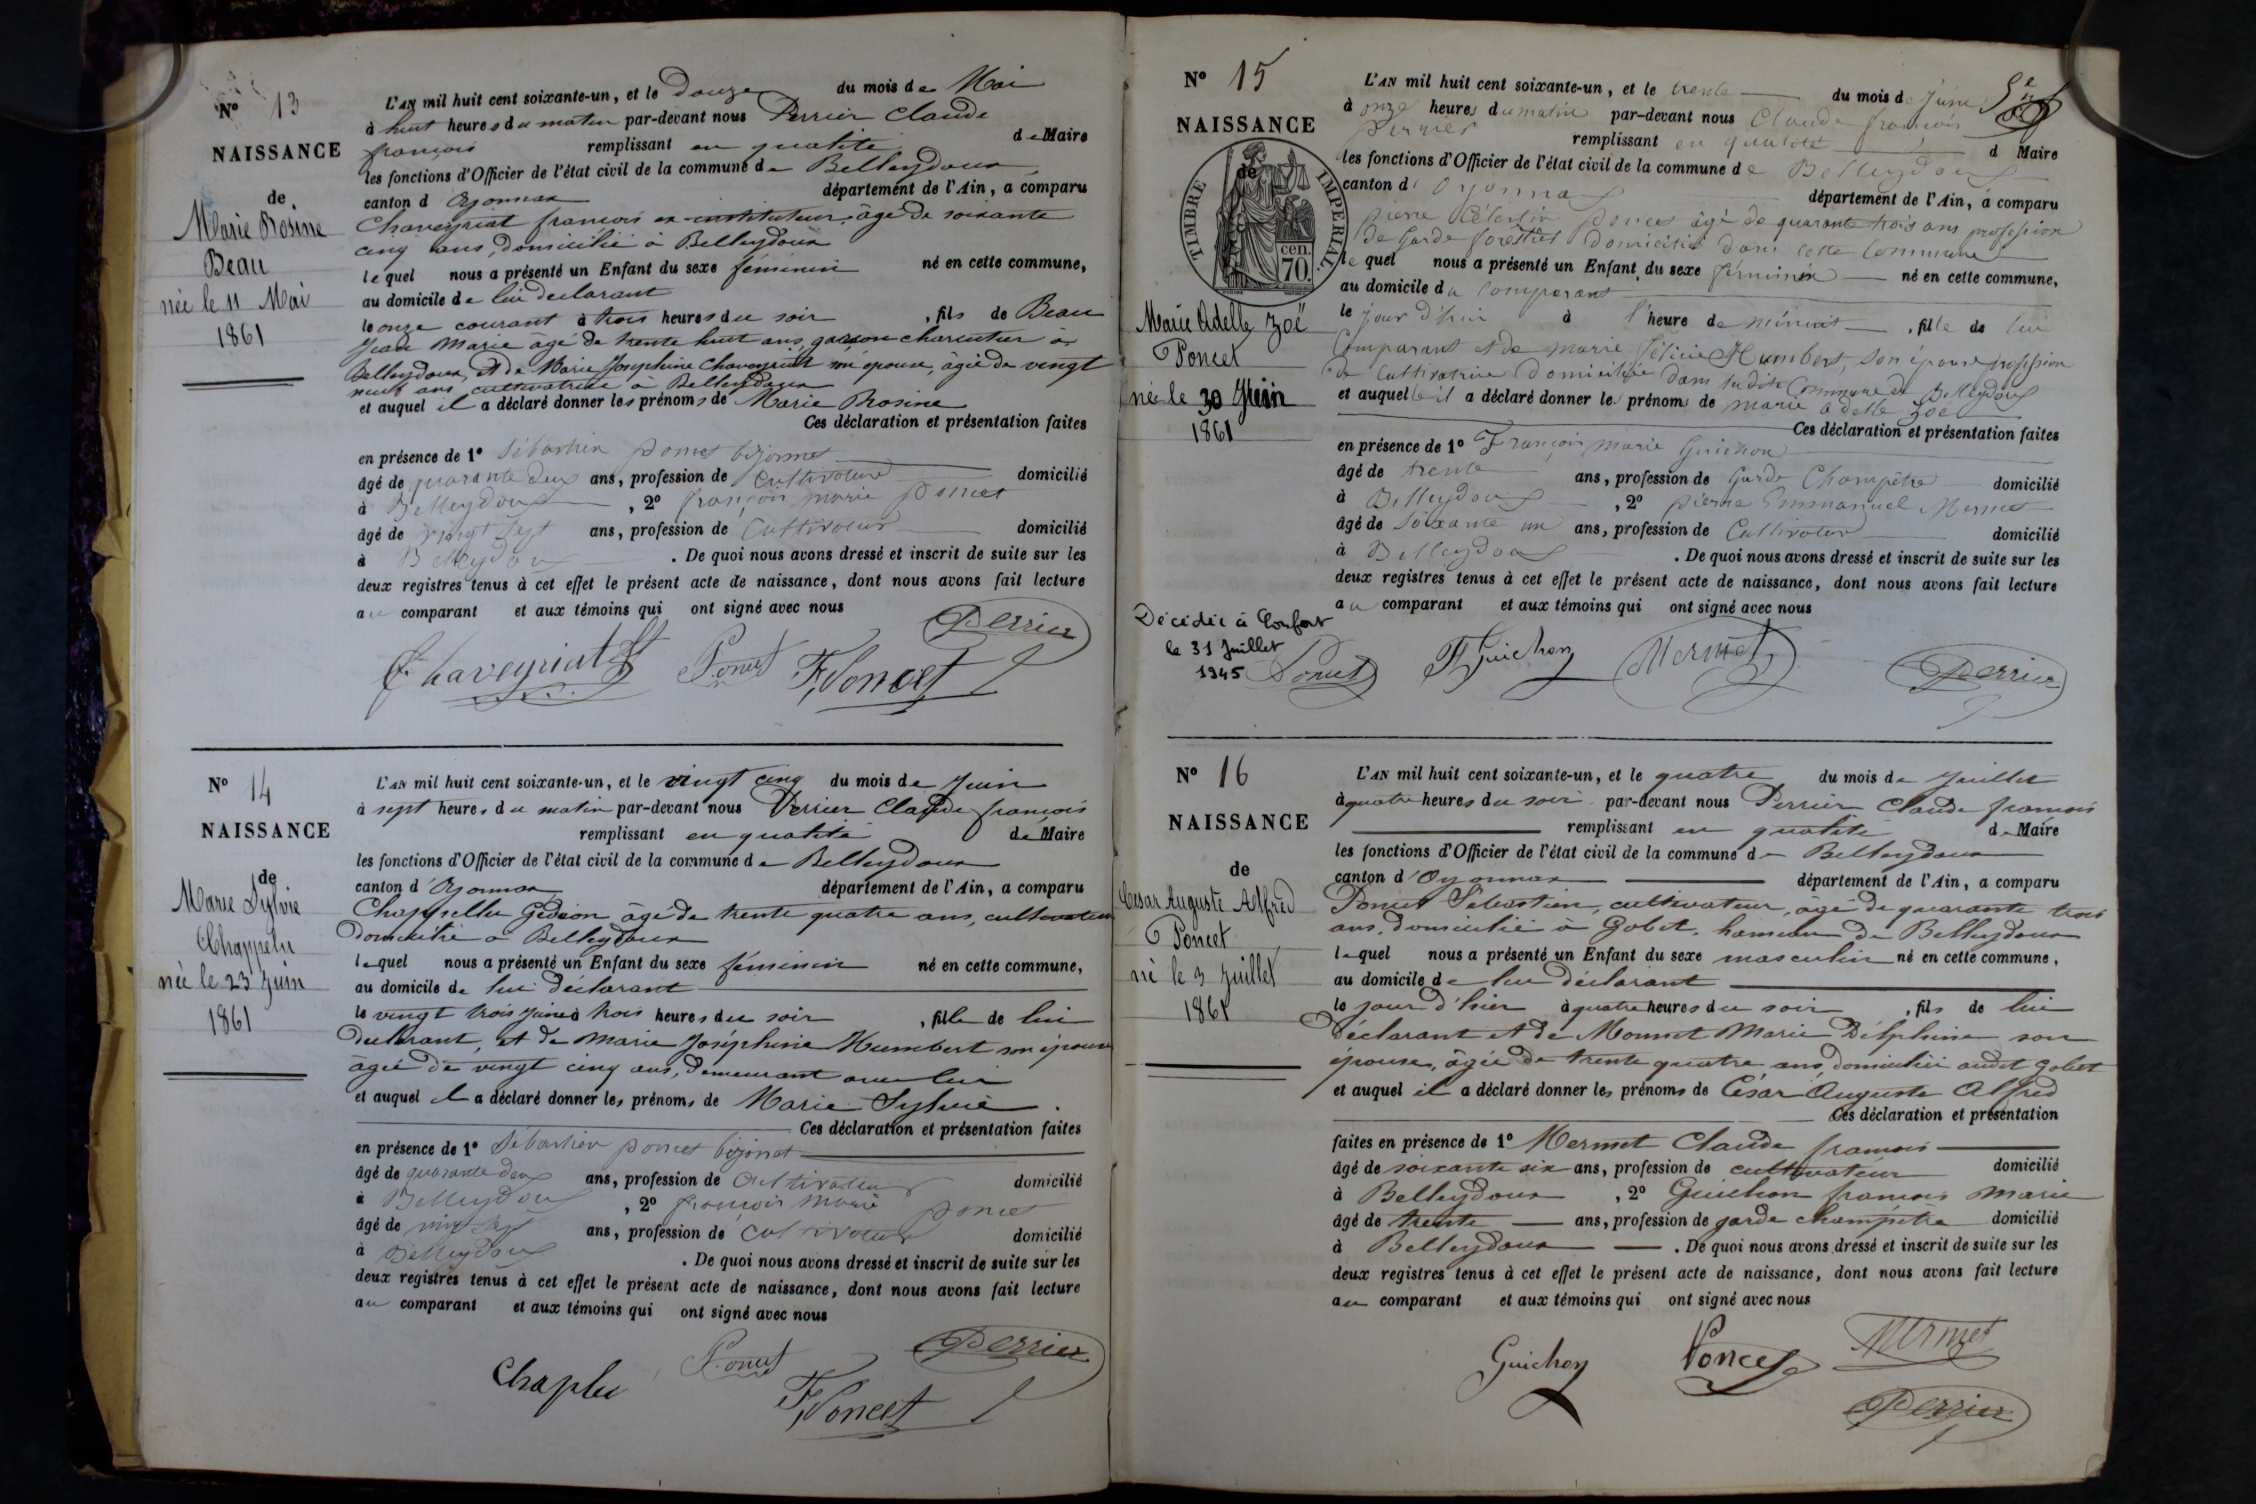 N° 13
NAISSANCE
de
Marie Rosine
Beau
née le 11 Mai
1861
L'AN mil huit cent soixante-un, et le douze du mois de Mai
à huit heures du matin par-devant nous Perrier Claude
françois remplissant en qualité de Maire
les fonctions d'Officier de l'état civil de la commune de Belleydoux
canton d Oyonnax département de l'Ain, a comparu
Chaveyriat françois ex-instituteur, âgé de soixante
cinq ans, domicilié à Belleydoux
lequel nous a présenté un Enfant du sexe féminin né en cette commune,
au domicile de lui déclarant
le onze courant à trois heures du soir, fils de Beau
Jean Marie âgé de trente huit ans, garçon charcutier à
Belleydoux, et de Marie Joséphine Chaveyriat son épouse, âgée de vingt
neuf ans cultivatrice à Belleydoux
et auquel il a déclaré donner les prénoms de Marie Rosine
Ces déclaration et présentation faites
en présence de 1° Sébastien poncet bizonnet
âgé de quarante deux ans, profession de Cultivateur domicilié
à Belleydoux, 2° françois marie poncet
âgé de vingt sept ans, profession de Cultivateur domicilié
à Belleydoux. De quoi nous avons dressé et inscrit de suite sur les
deux registres tenus à cet effet le présent acte de naissance, dont nous avons fait lecture
au comparant et aux témoins qui ont signé avec nous
Perrier
Chaveyriat Poncet F. Poncet
N° 14
NAISSANCE
de
Marie Sylvie
Chappelu
née le 23 Juin
1861
L'AN mil huit cent soixante-un, et le vingt cinq du mois de Juin
à sept heures du matin par-devant nous Perrier Claude françois
remplissant en qualité de Maire
les fonctions d'Officier de l'état civil de la commune de Belleydoux
canton d'Oyonnax département de l'Ain, a comparu
Chappellu Gédéon âgé de trente quatre ans, cultivateur
domicilié à Belleydoux
lequel nous a présenté un Enfant du sexe féminin né en cette commune,
au domicile de lui déclarant
le vingt trois Juin à trois heures du soir, fille de lui
déclarant, et de Marie Joséphine Humbert son épouse
âgée de vingt cinq ans, demeurant avec lui
et auquel il a déclaré donner les prénoms de Marie Sylvie.
Ces déclaration et présentation faites
en présence de 1° Sébastien poncet bizonnet
âgé de quarante deux ans, profession de Cultivateur domicilié
à Belleydoux, 2° françois marie poncet
âgé de vingt sept ans, profession de Cultivateur domicilié
à Belleydoux. De quoi nous avons dressé et inscrit de suite sur les
deux registres tenus à cet effet le présent acte de naissance, dont nous avons fait lecture
au comparant et aux témoins qui ont signé avec nous
Perrier
Chaplu Poncet F. Poncet
N° 15
NAISSANCE
de
TIMBRE IMPERIAL.
70 cen.
Marie Adelle Zoë
Poncet
née le 30 Juin
1861
Décédée à Confort
le 31 Juillet
1945
L'AN mil huit cent soixante-un, et le trente du mois de Juin
à onze heures du matin par-devant nous Claude françois
perrier remplissant en qualité d Maire
les fonctions d'Officier de l'état civil de la commune de Belleydoux
canton d'Oyonnax département de l'Ain, a comparu
pierre Célestin poncet âgé de quarante trois ans profession
de Garde forestier domicilié dans cette Commune
lequel nous a présenté un Enfant du sexe féminin né en cette commune,
au domicile du Comparant
le jour d'hui à l'heure de minuit, fille de lui
Comparant et de marie félicie Humbert, Son épouse profession
de Cultivatrice domiciliée dans ladite Commune de Belleydoux
et auquel il a déclaré donner les prénoms de marie adelle zoé
Ces déclaration et présentation faites
en présence de 1° François marie Guichon
âgé de trente ans, profession de Garde Champêtre domicilié
à Belleydoux, 2° pierre Emmanuel Mermet
âgé de Soixante un ans, profession de Cultivateur domicilié
à Belleydoux. De quoi nous avons dressé et inscrit de suite sur les
deux registres tenus à cet effet le présent acte de naissance, dont nous avons fait lecture
au comparant et aux témoins qui ont signé avec nous
Poncet F Guichon Mermet Perrier
N° 16
NAISSANCE
de
César Auguste Alfred
Poncet
né le 3 Juillet
1861
L'AN mil huit cent soixante-un, et le quatre du mois de Juillet
à quatre heures du soir par-devant nous Perrier Claude françois
remplissant en qualité de Maire
les fonctions d'Officier de l'état civil de la commune de Belleydoux
canton d'Oyonnax département de l'Ain, a comparu
Poncet Sébastien, cultivateur, âgé de quarante trois
ans, domicilié à Gobet, hameau de Belleydoux
lequel nous a présenté un Enfant du sexe masculin né en cette commune,
au domicile de lui déclarant
le jour d'hier à quatre heures du soir, fils de lui
déclarant et de Mounet Marie Délphine son
épouse, âgée de trente quatre ans, domiciliée audit Gobet
et auquel il a déclaré donner les prénoms de César Auguste Alfred
Ces déclaration et présentation
faites en présence de 1° Mermet Claude françois
âgé de soixante six ans, profession de cultivateur domicilié
à Belleydoux, 2° Guichon françois marie
âgé de trente ans, profession de garde champêtre domicilié
à Belleydoux. De quoi nous avons dressé et inscrit de suite sur les
deux registres tenus à cet effet le présent acte de naissance, dont nous avons fait lecture
au comparant et aux témoins qui ont signé avec nous
Guichon Poncet Mermet
Perrier